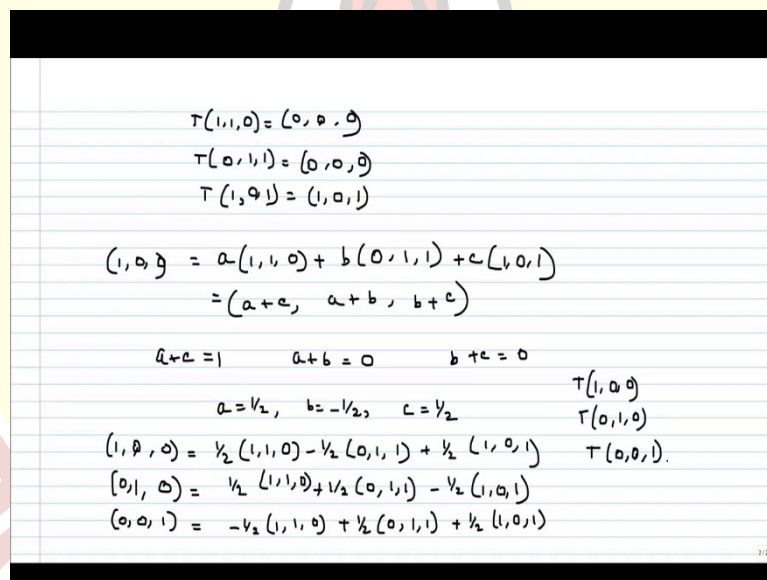 T(1,1,0) = (0,0,0)
T(0,1,1) = (0,0,0)
T(1,0,1) = (1,0,1)
(1,0,0) = a(1,1,0) + b(0,1,1) + c(1,0,1)
= (a+c, a+b, b+c)
a+c = 1 a+b = 0 b+c = 0
a = 1/2, b = -1/2, c = 1/2
T(1,0,0)
T(0,1,0)
T(0,0,1).
(1,0,0) = 1/2 (1,1,0) - 1/2 (0,1,1) + 1/2 (1,0,1)
(0,1,0) = 1/2 (1,1,0) + 1/2 (0,1,1) - 1/2 (1,0,1)
(0,0,1) = -1/2 (1,1,0) + 1/2 (0,1,1) + 1/2 (1,0,1)